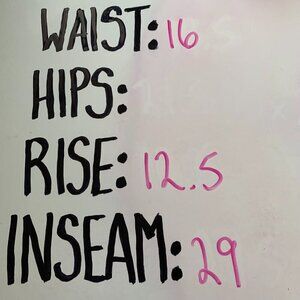 WAIST: 16
HIPS:
RISE: 12.5
INSEAM: 29